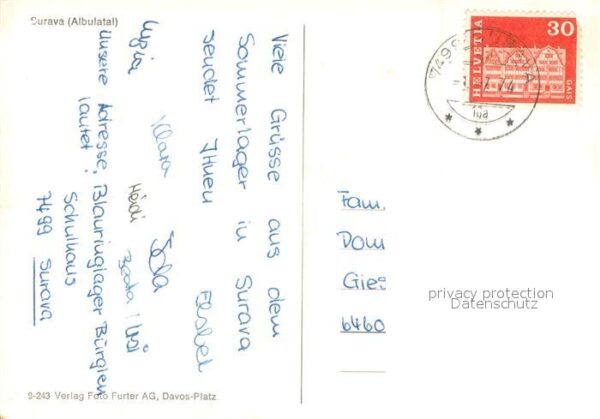 Surava (Albulatal)
Viele Grüsse aus dem
Sommerlager in Surava
sendet Ihnen
Elsbeth
Klara
Heidi
Unsere Adresse, Blauringlager Bürglen
lautet:
Schulhaus
7499 Surava
9-243 Verlag Foto Furter AG, Davos-Platz
HELVETIA
30
GAIS
7499
74
Fam.
Dom
Gies
6460
privacy protection
Datenschutz